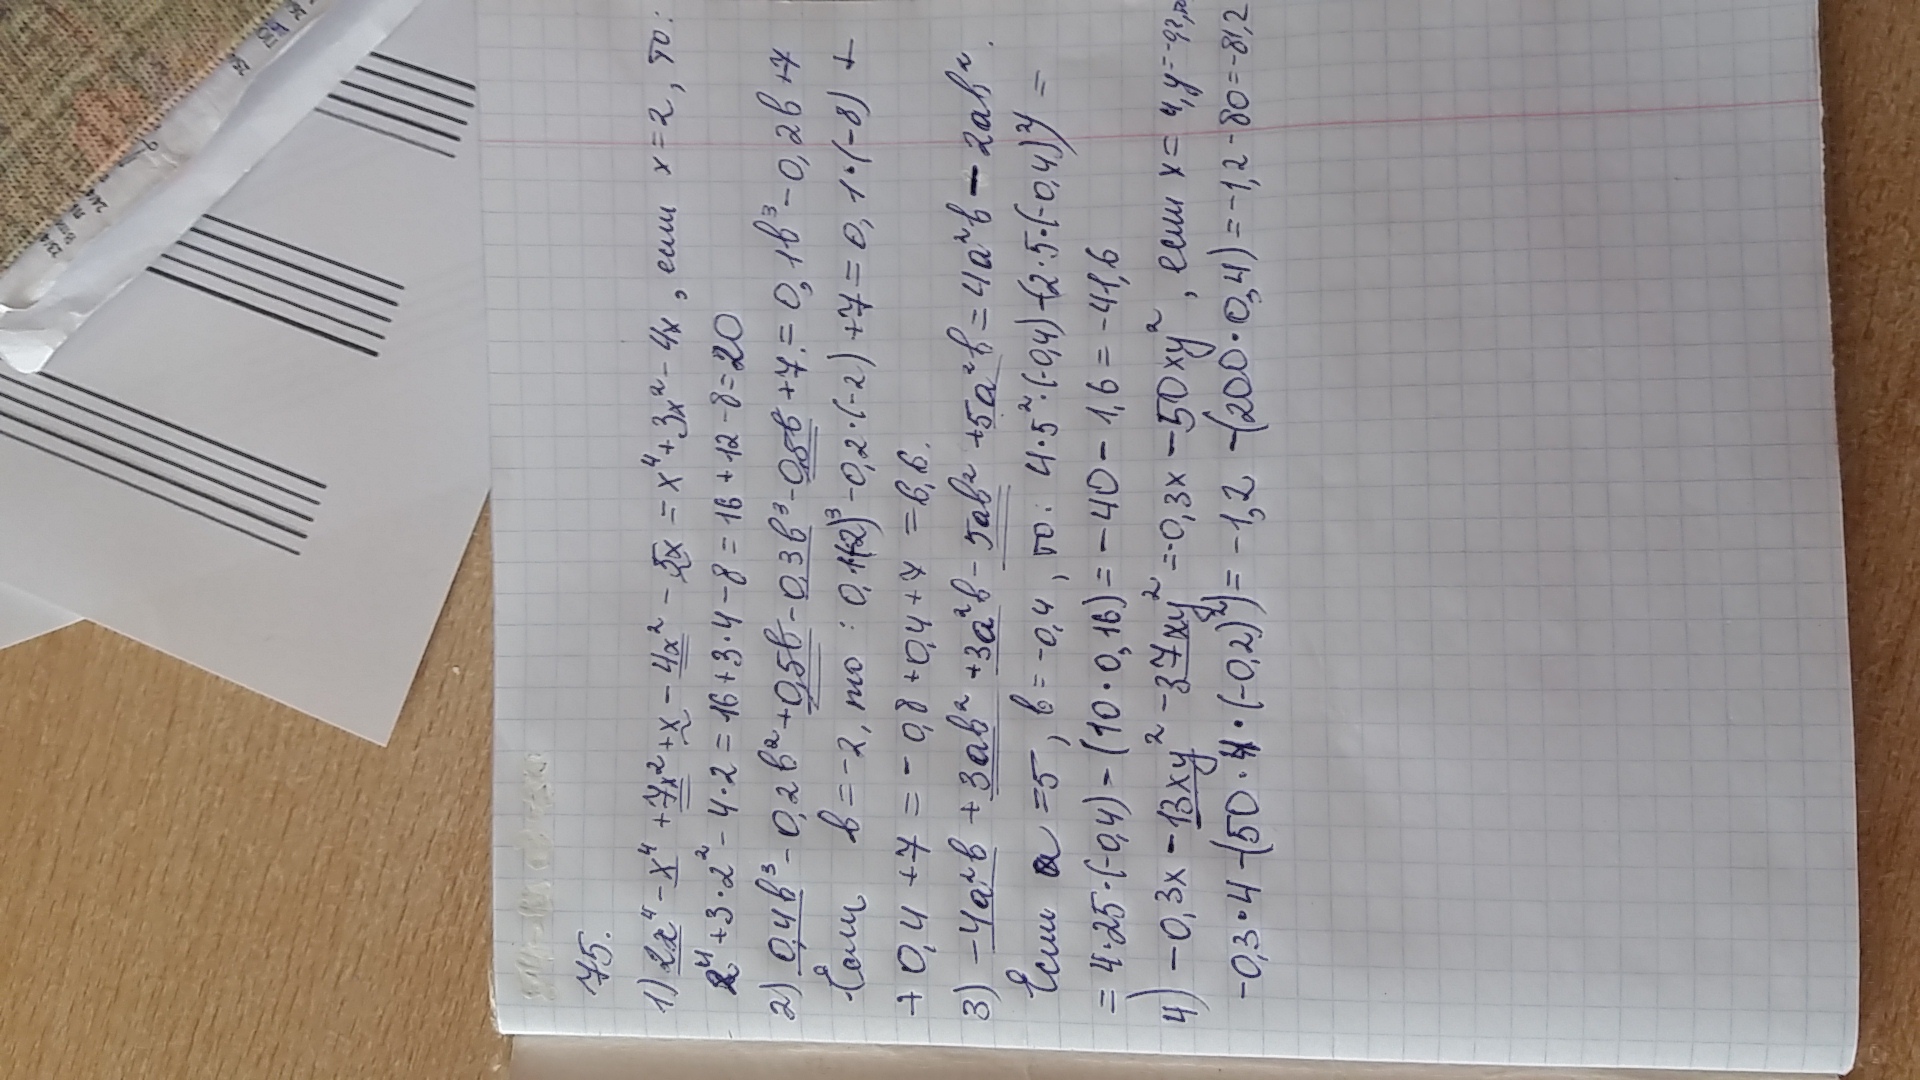 75.
1) 2x⁴ - x⁴ + 7x² + x - 4x² - 5x = x⁴ + 3x² - 4x, если x = 2, то:
2⁴ + 3·2² - 4·2 = 16 + 3·4 - 8 = 16 + 12 - 8 = 20
2) 0,4b³ - 0,2b² + 0,5b - 0,3b³ - 0,5b + 7 = 0,1b³ - 0,2b + 7
Если b = -2, то: 0,1(-2)³ - 0,2·(-2) + 7 = 0,1·(-8) +
+ 0,4 + 7 = -0,8 + 0,4 + 7 = 6,6.
3) -4a²b + 3ab² + 3a²b - 5ab² + 5a²b = 4a²b - 2ab².
Если a = 5, b = -0,4, то: 4·5²·(-0,4) - (2·5·(-0,4)²) =
= 4·25·(-0,4) - (10·0,16) = -40 - 1,6 = -41,6
4) -0,3x - 13xy² - 37xy² = -0,3x - 50xy², если x = 4, y = -0,2, то
-0,3·4 - (50·4·(-0,2)²) = -1,2 - (200·0,4) = -1,2 - 80 = -81,2